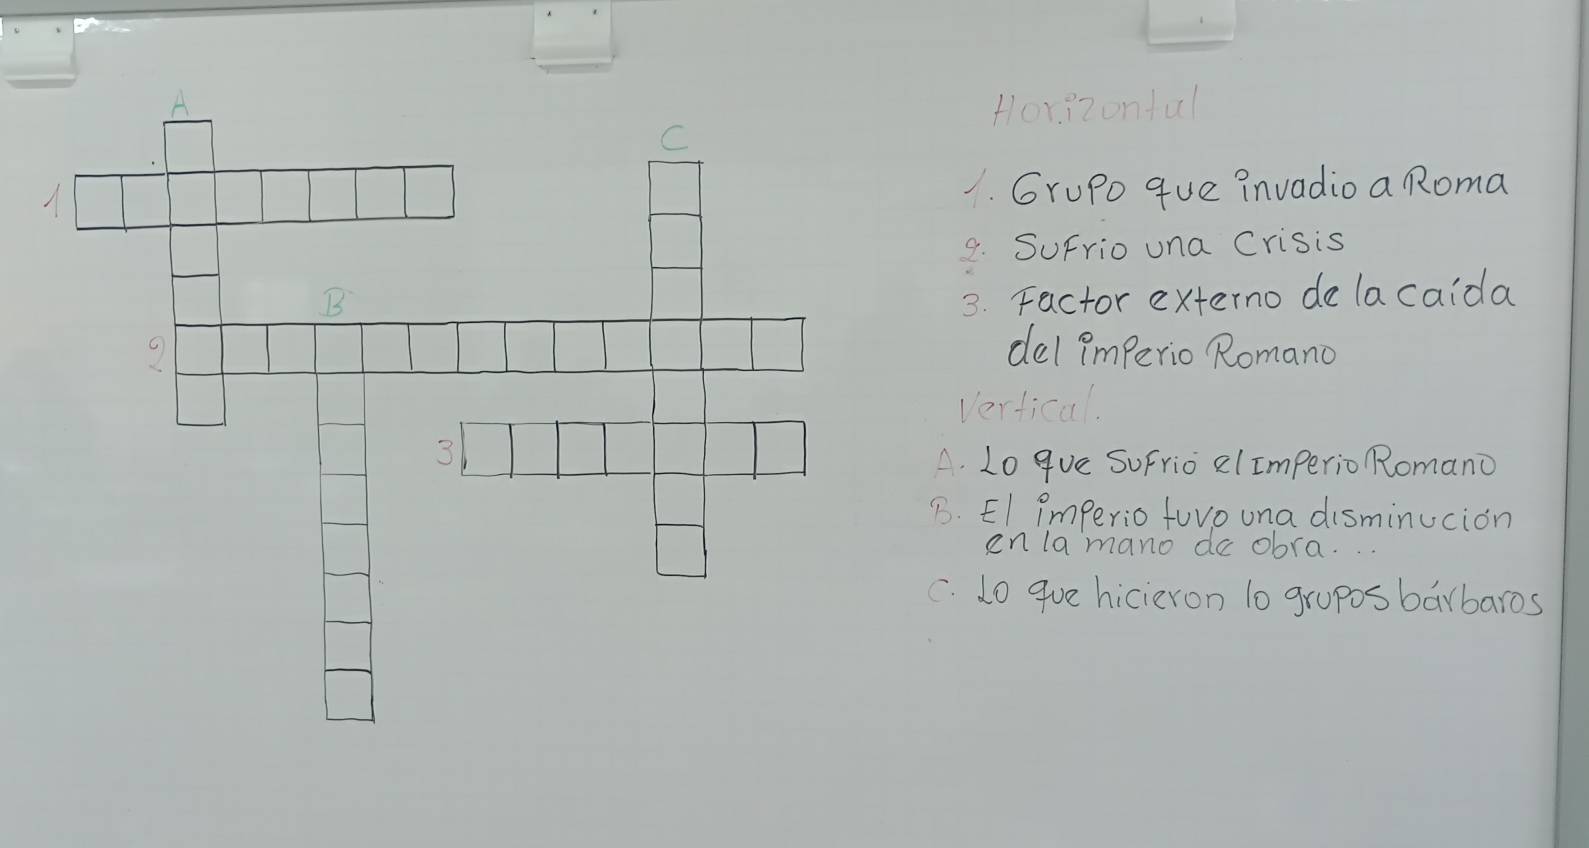 A
C
1
B
2
3
Horizontal
1. Grupo que invadio a Roma
2. Sufrio una crisis
3. Factor externo de la caída
del imperio Romano
Vertical.
A. Lo que sufrió el Imperio Romano
B. El imperio tuvo una disminución
en la mano de obra...
C. Lo que hicieron lo grupos bárbaros